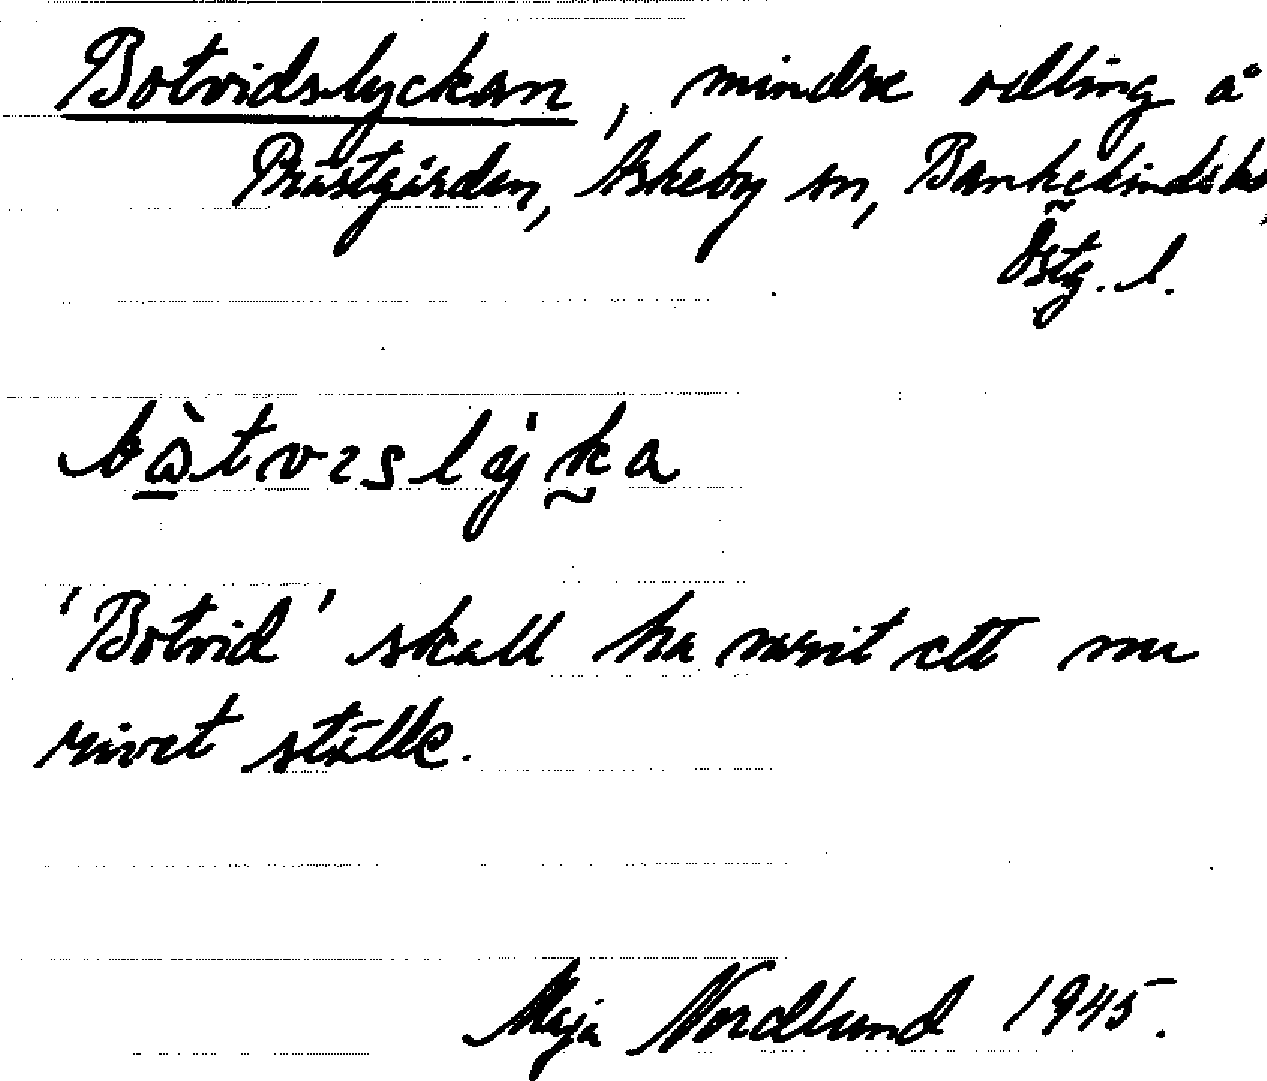 Botvidslyckan, mindre odling å
Prästgården, Askeby sn, Bankekinds hd,
Östg. l.
bòtvıslýka
'Botvid' skall ha varit ett nu
rivet ställe.
Maja Nordlund 1945.